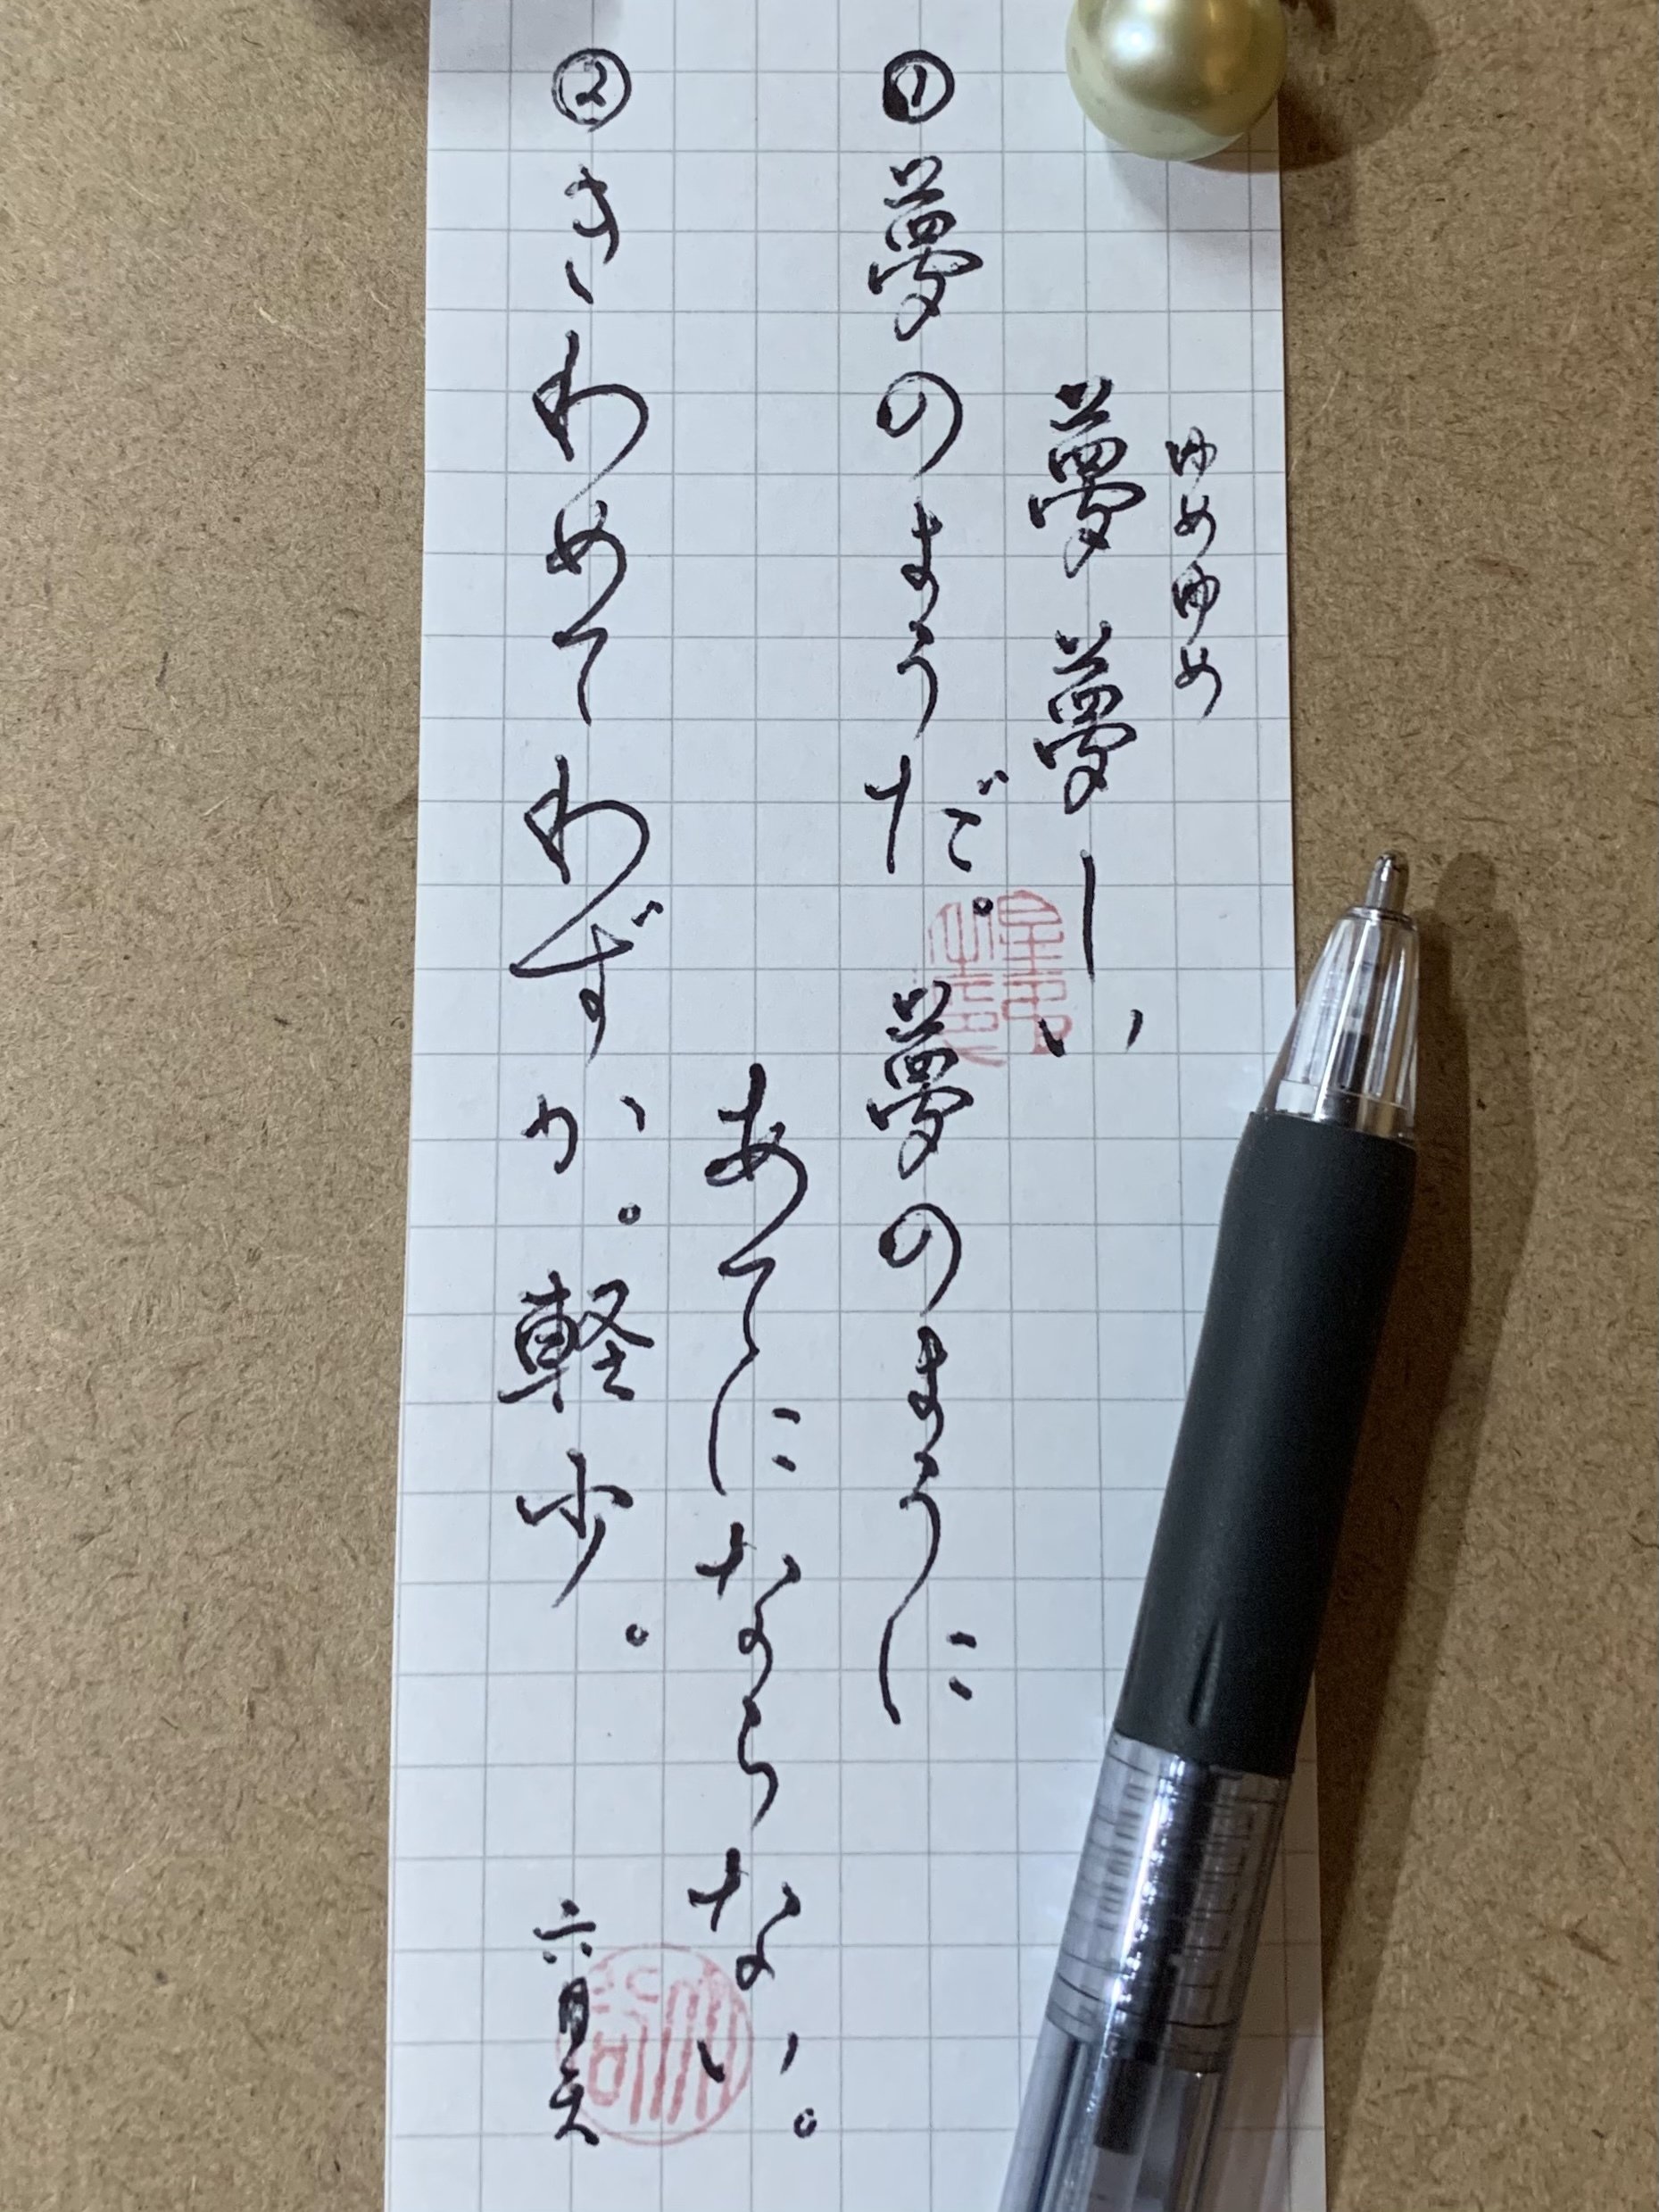 ゆめゆめ
夢夢しい
①夢のようだ。夢のように
あてにならない。
②きわめてわずか。軽少。